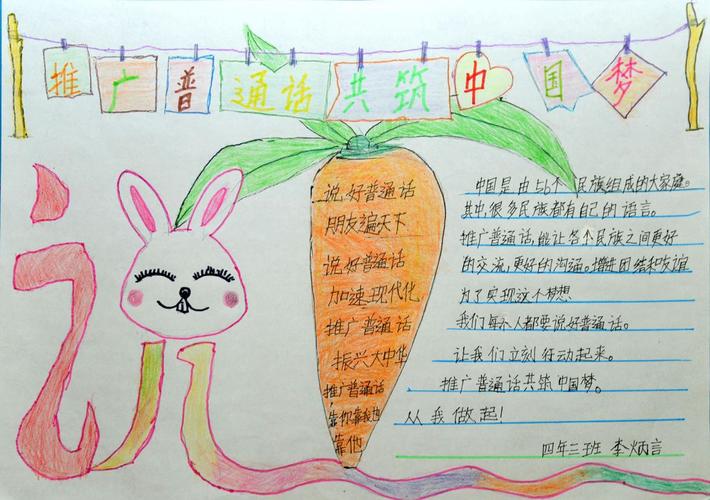 推广普通话共筑中国梦
说
说好普通话
朋友遍天下
说好普通话
加速现代化
推广普通话
振兴大中华
推广普通话
靠你靠我也
靠他
中国是由56个民族组成的大家庭。
其中,很多民族都有自己的语言。
推广普通话,能让各个民族之间更好
的交流,更好的沟通。增进团结和友谊
为了实现这个梦想
我们每个人都要说好普通话。
让我们立刻行动起来。
推广普通话共筑中国梦。
从我做起!
四年三班 李炳言